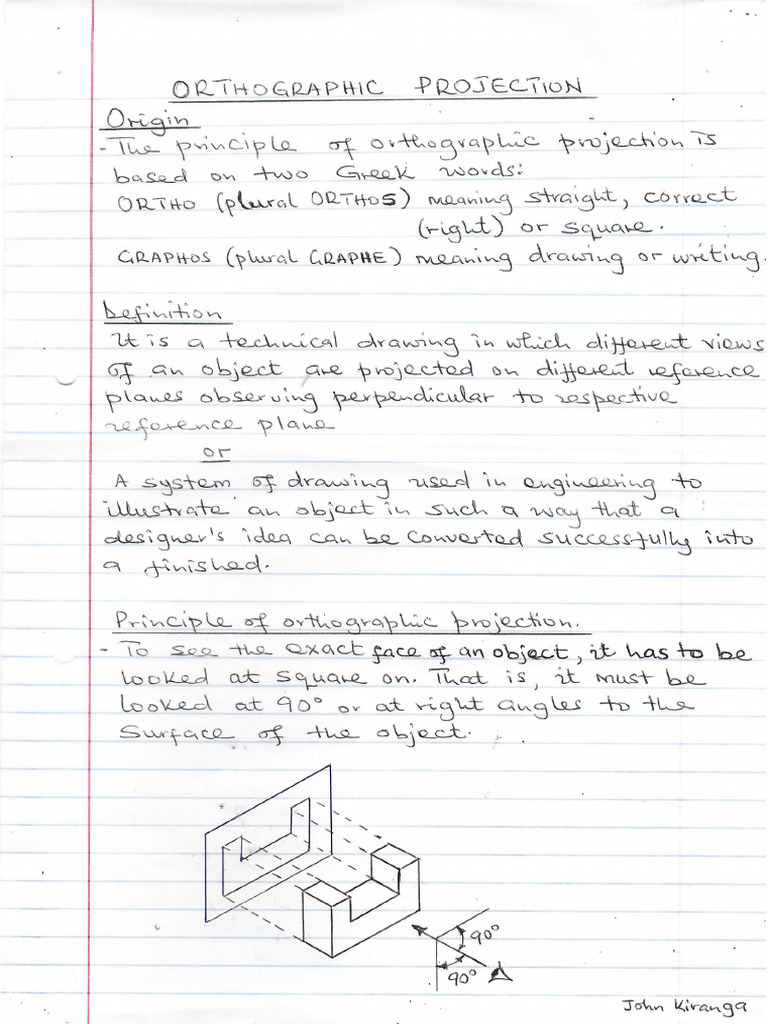 ORTHOGRAPHIC PROJECTION
Origin
- The principle of orthographic projection is
based on two Greek words:
ORTHO (plural ORTHOS) meaning straight, correct
(right) or square.
GRAPHOS (plural GRAPHE) meaning drawing or writing.
Definition
It is a technical drawing in which different views
of an object are projected on different reference
planes observing perpendicular to respective
reference plane
or
A system of drawing used in engineering to
illustrate an object in such a way that a
designer's idea can be converted successfully into
a finished.
Principle of orthographic projection.
- To see the exact face of an object, it has to be
looked at square on. That is, it must be
looked at 90° or at right angles to the
surface of the object.
90°
90°
John Kiranga